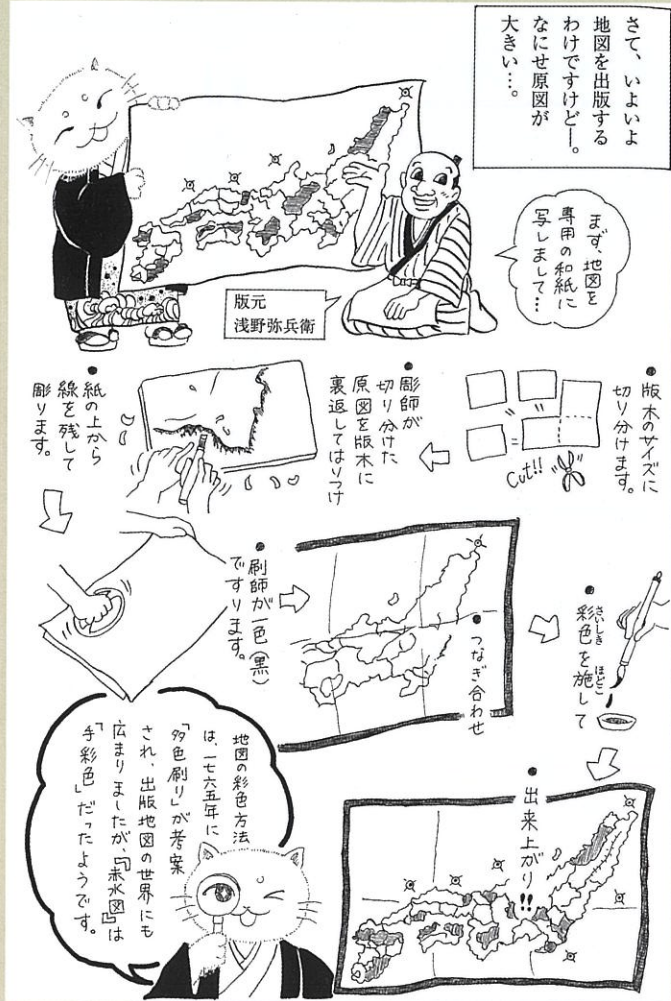 さて、いよいよ
地図を出版する
わけですけどー。
なにせ原図が
大きい…。
まず、地図を
専用の和紙に
写しまして…
版元
浅野弥兵衛
•版木のサイズに
切り分けます。
Cut!!
•彫師が
切り分けた
原図を版木に
裏返してはりつけ
•紙の上から
線を残して
彫ります。
•刷師が一色(黒)
ですります。
•つなぎ合わせ
•彩色を施して
さいしき ほどこ
•出来上がり!!
地図の彩色方法
は、一七六五年に
「多色刷り」が考案
され、出版地図の世界にも
広まりましたが、『赤水図』は
「手彩色」だったようです。